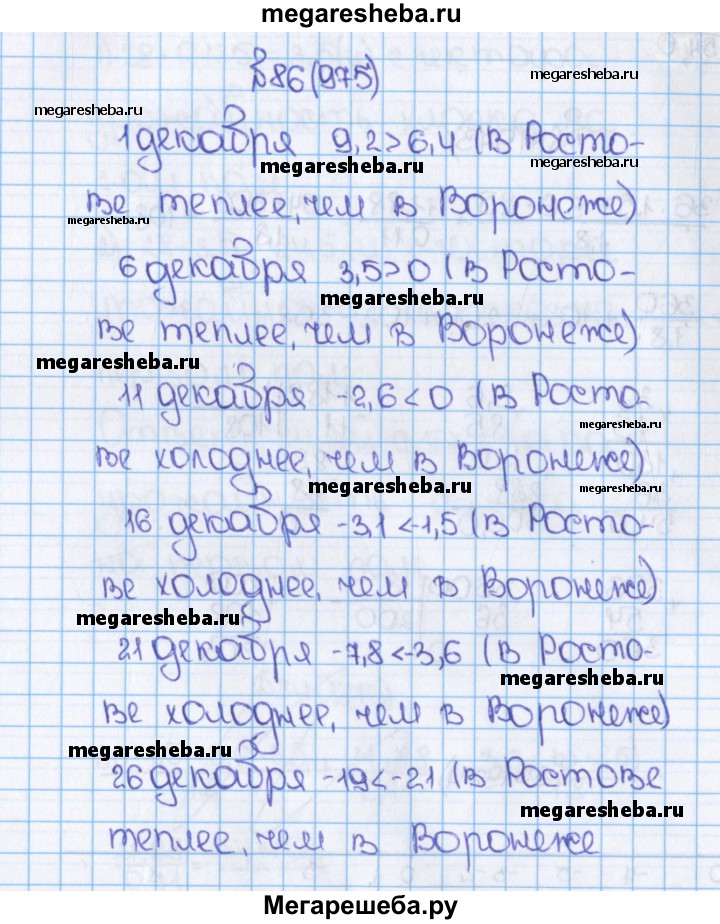 megaresheba.ru
№86(975)
megaresheba.ru
megaresheba.ru
1 декабря 9,2>6,4 (в Росто-
megaresheba.ru
megaresheba.ru
ве теплее, чем в Воронеже)
megaresheba.ru
6 декабря 3,5>0 (в Росто-
megaresheba.ru
ве теплее, чем в Воронеже)
megaresheba.ru
11 декабря -2,6<0 (в Росто-
megaresheba.ru
ве холоднее, чем в Воронеже)
megaresheba.ru
megaresheba.ru
16 декабря -3,1<-1,5 (в Росто-
ве холоднее, чем в Воронеже)
megaresheba.ru
21 декабря -7,8<-3,6 (в Росто-
megaresheba.ru
ве холоднее, чем в Воронеже)
megaresheba.ru
26 декабря -19<-21 (в Ростове
megaresheba.ru
теплее, чем в Воронеже
Мегарешеба.ру